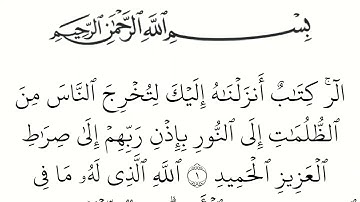 بِسْمِ ٱللَّهِ ٱلرَّحْمَٰنِ ٱلرَّحِيمِ
الٓرۚ كِتَٰبٌ أَنزَلْنَٰهُ إِلَيْكَ لِتُخْرِجَ ٱلنَّاسَ مِنَ
ٱلظُّلُمَٰتِ إِلَى ٱلنُّورِ بِإِذْنِ رَبِّهِمْ إِلَىٰ صِرَٰطِ
ٱلْعَزِيزِ ٱلْحَمِيدِ ١ ٱللَّهِ ٱلَّذِى لَهُۥ مَا فِى